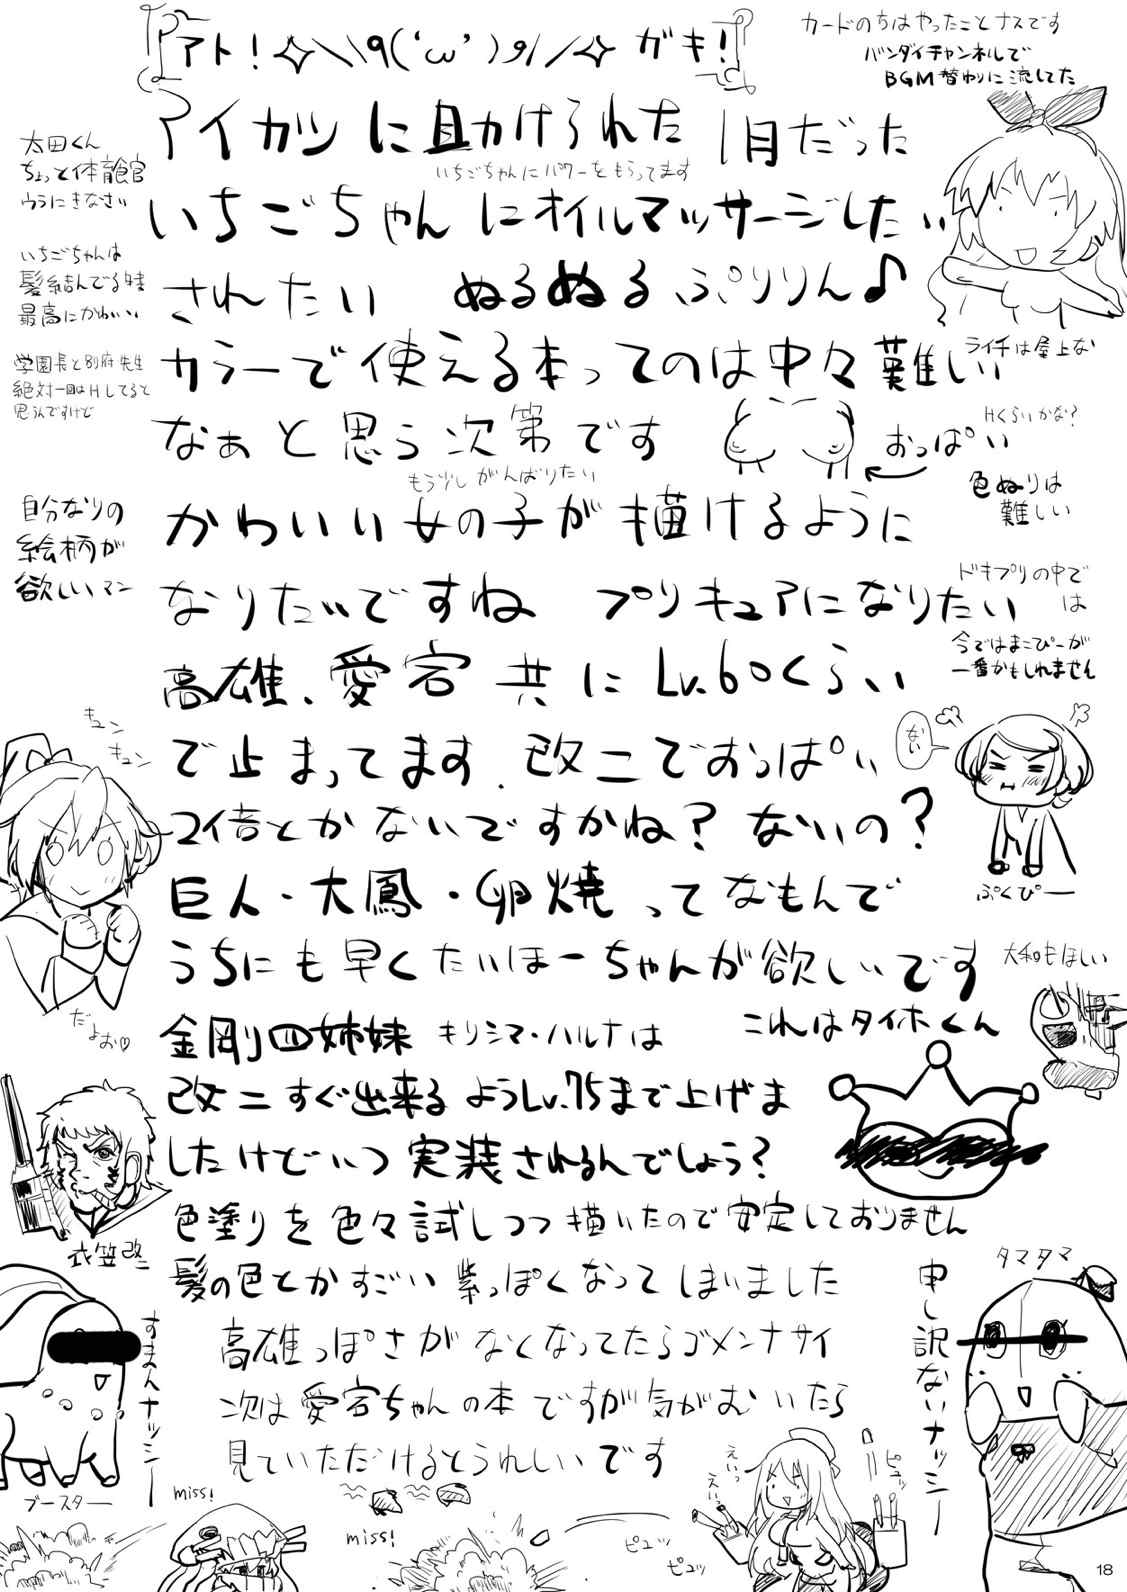 アト!✧\\٩('ω')و//✧ ガキ!
カードのちはやったことナスです
バンダイチャンネルで
BGM替わりに流してた
アイカツに助けられた1月だった
太田くん
ちょっと体育館
ウラにきなさい
いちごちゃんにパワーをもらってます
いちごちゃんにオイルマッサージしたい
いちごちゃんは
髪結んでる時
最高にかわいい
されたい ぬるぬるぷりりん♪
学園長と別府先生
絶対一回はHしてると
思うんですけど
カラーで使える本ってのは中々難しい
ライチは屋上な
なぁと思う次第です
おっぱい
Hくらいかな?
もう少しがんばりたい
色ぬりは
難しい
自分なりの
絵柄が
欲しいマン
かわいい女の子が描けるように
なりたいですね プリキュアになりたい
ドキプリの中で
は
今ではまこぴーが
一番かもしれません
高雄、愛宕共にLv.60くらい
で止まってます. 改二でおっぱい
キュン
キュン
ない
2倍とかないですかね?ないの?
巨人・大鳳・卵焼ってなもんで
ぷくぴー
うちにも早くたいほーちゃんが欲しいです
大和もほしい
だよお♡
金剛四姉妹 キリシマ・ハルナは
これはタイホくん
改二すぐ出来るようLv.75まで上げま
したけどいつ実装されるんでしょう?
色塗りを色々試しつつ描いたので安定しておりません
衣笠改二
髪の色とかすごい紫っぽくなってしまいました
タマタマ
申し訳ないナッシー
すまんナッシー
高雄っぽさがなくなってたらゴメンナサイ
次は愛宕ちゃんの本ですが気がむいたら
見ていただけるとうれしいです
ブースター
miss!
miss!
えいっ
えいっ
ピュッ
ピュッ
ピュッ
18